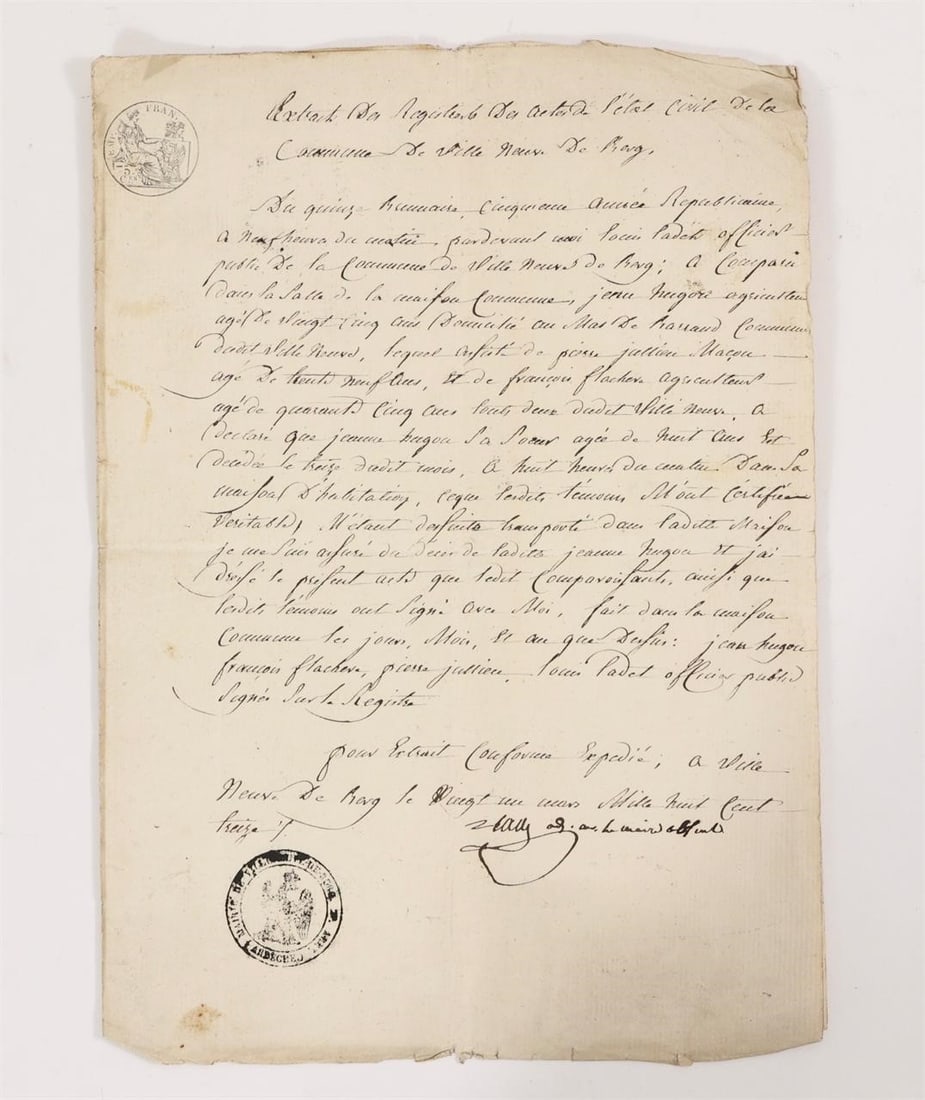 FRAN
Extrait Des Registres Des actes de l'état Civil De la
Commune De Ville Neuve De Berg,
Du quinze brumaire, cinquieme année Republicaine,
a Neuf heures du matin, pardevant moi louis ladet officier
public De la Commune de Ville Neuve de Berg; a Comparu
dans la Salle de la maison Commune, jean hugon agriculteur
agé De Vingt Cinq ans Domicilié au Mas De Commune
dudit Ville Neuve, lequel assisté de pierre jullien Maçon
agé De trente neuf ans, Et de françois flachere agriculteur
agé de quarante Cinq ans touts deux dudit Ville Neuve, a
declaré que jeanne hugon Sa Soeur agée de huit ans Est
decedée le treize dudit mois, a huit heures du matin Dans Sa
maison D'habitation, ceque lesdits témoins M'ont Certifié
Veritable, M'étant desuite transporté dans ladite Maison
je me Suis assuré du décès de ladite jeanne hugon Et j'ai
dressé le présent acte que ledit Comparoissant, ainsi que
lesdits témoins ont Signé avec Moi, fait dans la maison
Commune les jours, Mois, Et an que Dessus: jean hugon
françois flachere, pierre jullien, louis ladet officier public
Signés Sur le Registre
pour Extrait Conforme Expedié, a Ville
Neuve De Berg le Vingt un mars Mille huit Cent
treize
le maire absent
MAIRIE DE VILLENEUVE DE BERG (ARDECHE)